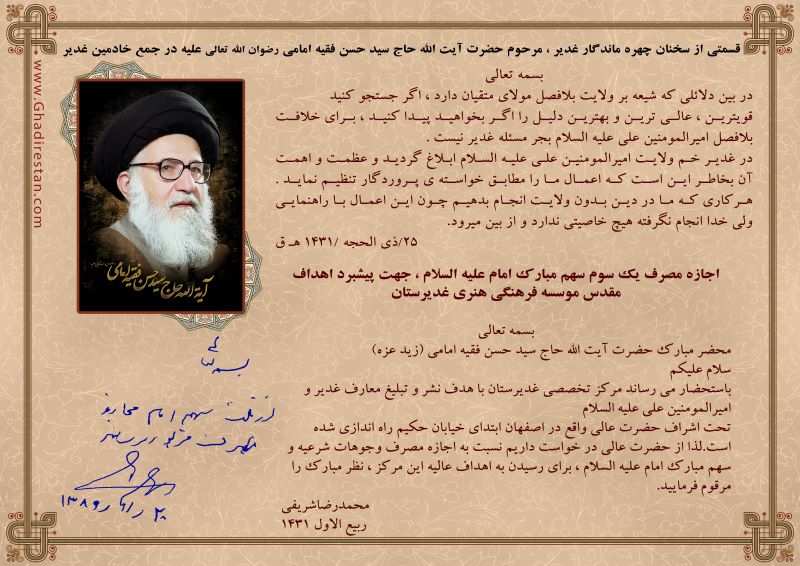 قسمتی از سخنان چهره ماندگار غدیر ، مرحوم حضرت آیت الله حاج سید حسن فقیه امامی رضوان الله تعالی علیه در جمع خادمین غدیر
www.Ghadirestan.com
بسمه تعالی
در بین دلائلی که شیعه بر ولایت بلافصل مولای متقیان دارد ، اگر جستجو کنید
قویترین ، عالی ترین و بهترین دلیل را اگر بخواهید پیدا کنید ، برای خلافت
بلافصل امیرالمومنین علی علیه السلام بجر مسئله غدیر نیست .
در غدیر خم ولایت امیرالمومنین علی علیه السلام ابلاغ گردید و عظمت و اهمت
آن بخاطر این است که اعمال ما را مطابق خواسته ی پروردگار تنظیم نماید .
هرکاری که ما در دین بدون ولایت انجام بدهیم چون این اعمال با راهنمایی
ولی خدا انجام نگرفته هیچ خاصیتی ندارد و از بین میرود.
۲۵/ذی الحجه /۱۴۳۱ هـ ق
آیة الله حاج سید حسن فقیه امامی
اجازه مصرف یک سوم سهم مبارک امام علیه السلام ، جهت پیشبرد اهداف
مقدس موسسه فرهنگی هنری غدیرستان
بسمه تعالی
محضر مبارک حضرت آیت الله حاج سید حسن فقیه امامی (زید عزه)
سلام علیکم
باستحضار می رساند مرکز تخصصی غدیرستان با هدف نشر و تبلیغ معارف غدیر و
امیرالمومنین علی علیه السلام
تحت اشراف حضرت عالی واقع در اصفهان ابتدای خیابان حکیم راه اندازی شده
است.لذا از حضرت عالی در خواست داریم نسبت به اجازه مصرف وجوهات شرعیه و
سهم مبارک امام علیه السلام ، برای رسیدن به اهداف عالیه این مرکز ، نظر مبارک را
مرقوم فرمایید.
محمدرضاشریفی
ربیع الاول ۱۴۳۱
بسمه تعالی
از ثلث سهم امام مجازید